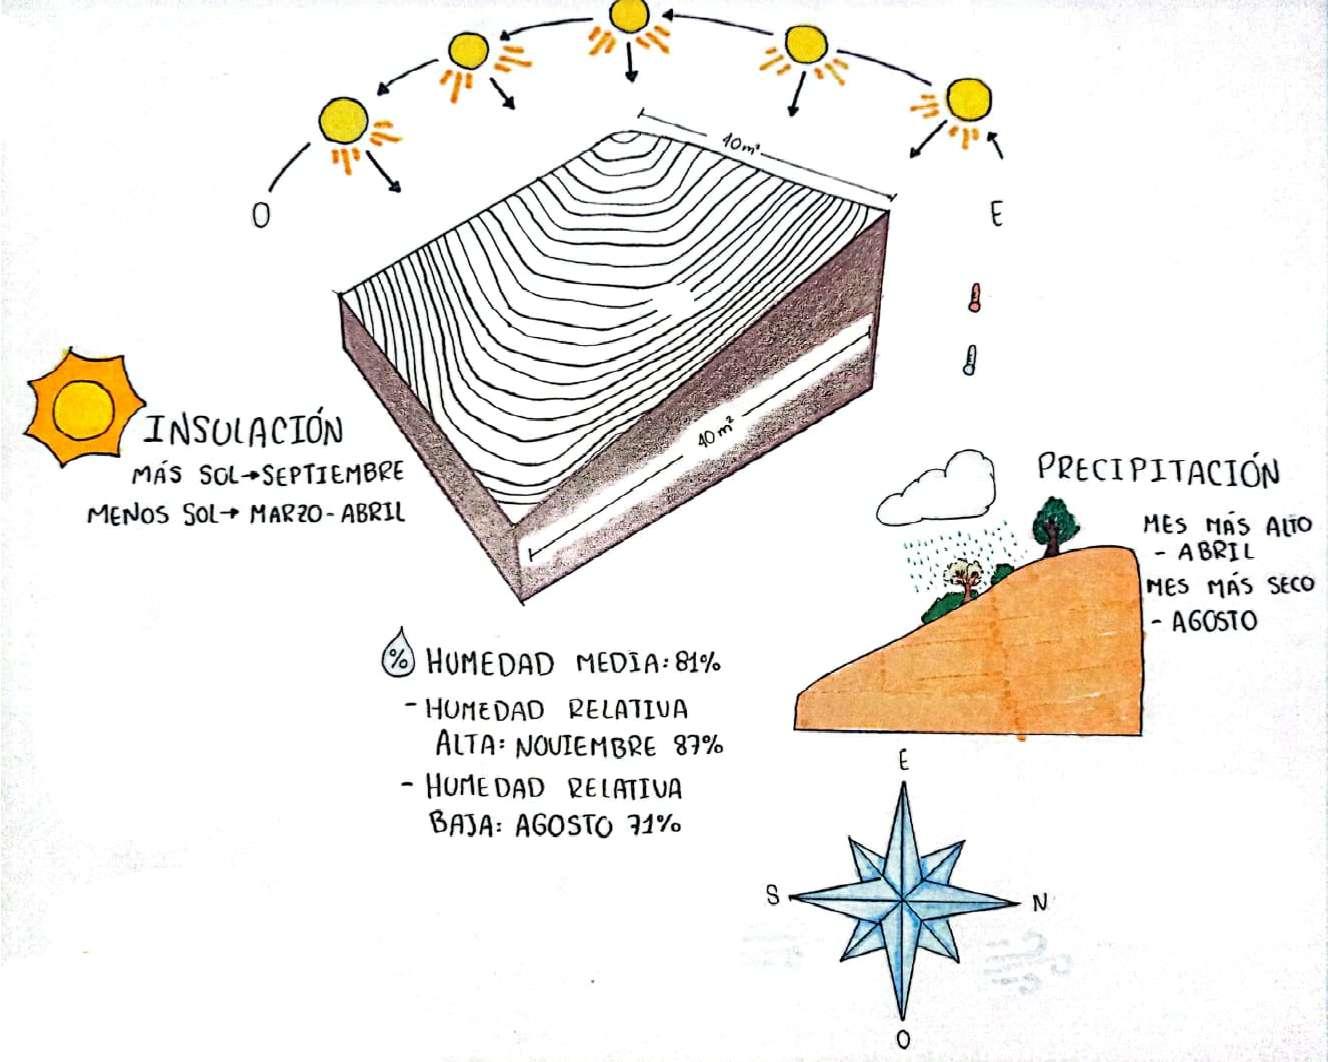 O
E
10m²
40m²
INSULACIÓN
MÁS SOL→SEPTIEMBRE
MENOS SOL→ MARZO-ABRIL
PRECIPITACIÓN
MES MÁS ALTO
- ABRIL
MES MÁS SECO
- AGOSTO
% HUMEDAD MEDIA: 81%
- HUMEDAD RELATIVA
ALTA: NOVIEMBRE 87%
- HUMEDAD RELATIVA
BAJA: AGOSTO 71%
E
S
N
O